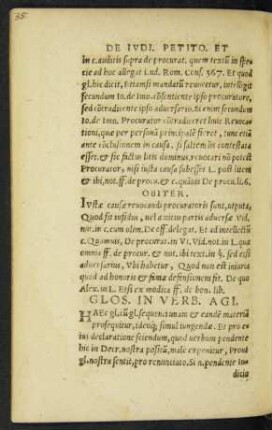 DE IVDI. PETITO. ET
in c. auditis supra de procurat. quem textū in spe-
tie ad hoc allegat Lud. Rom. Cons. 367. Et quod
gl. hic dicit, Etiamsi mandatū reuocetur, intellige
secundum Io. de Imo. cōsentiente ipso procuratore,
sed cōtradicente ipso aduersario. Si enim secundum
Io. de Imo. Procurator cōtradiceret huic Reuoca-
tioni, quæ per personā principalē fieret, tunc etiā
ante cōclusionem in causa, si saltem lis contestata
esset, & sic factus litis dominus, reuocari nō potest
Procurator, nisi iusta causa subesset L. post litem
& ibi, not. ff. de procu. & c. quāuis De procu. li. 6.
OBITER.
Iustæ causæ reuocandi procuratoris sunt, utputa,
Quod sit infidus, uel amicus partis aduersæ Vid.
not. in c. cum olim. De off. delegat. Et ad intellectū
c. Quamuis, De procurat. in VI. Vid. not. in L. quæ
omnia ff. de procur. & not. ibi text. in §. sed etsi
aduersarius, Vbi habetur, Quod non est iniuria
quod ad honoris & fama defensionem fit. De quo
Alex. in L. Etsi ex modica ff. de bon. lib.
GLOS. IN VERB. AGI.
HAEc gl. cū gl. sequen. tunam & eandē materiā
prosequitur, ideoq; simul iungendæ. Et pro ea
ius declaratione sciendum, quod uerbum pendente
hic in Decr. nostra positū, malè exponitur, Prout
gl. nostra sentit, pro renunciato. Si n. pendente Iu-
dicio